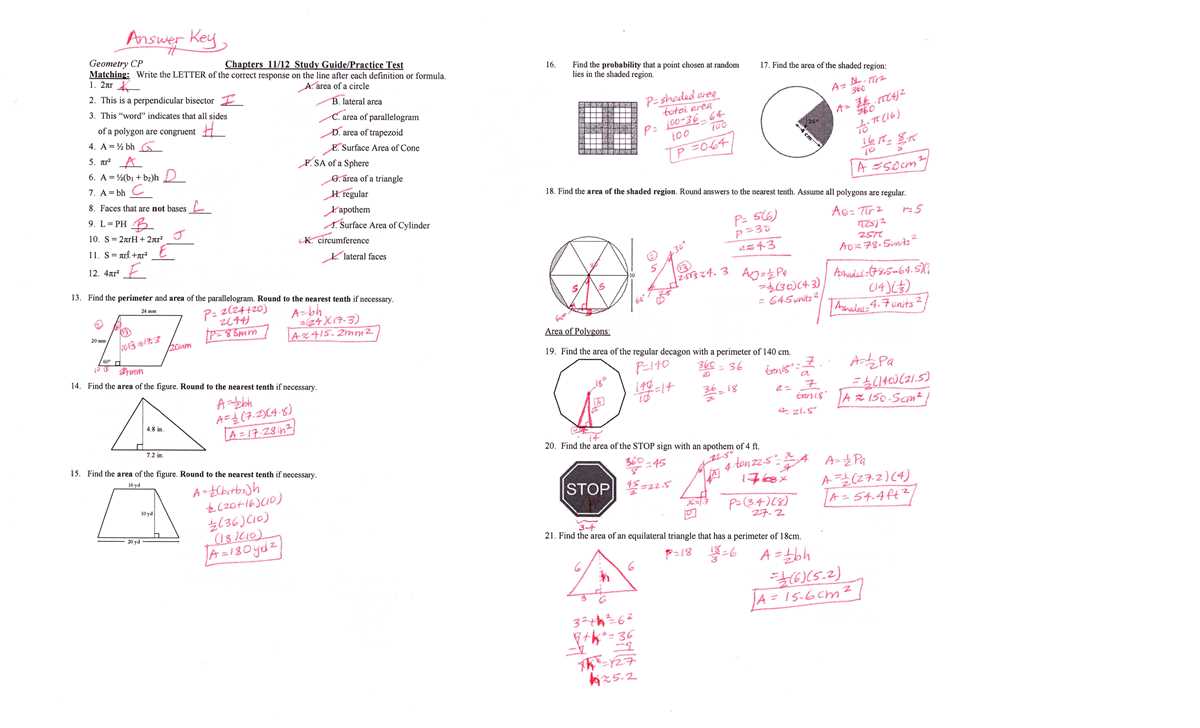 Answer Key
Geometry CP Chapters 11/12 Study Guide/Practice Test
Matching: Write the LETTER of the correct response on the line after each definition or formula.
1. 2πr K
A. area of a circle
2. This is a perpendicular bisector I
B. lateral area
3. This "word" indicates that all sides
of a polygon are congruent H
C. area of parallelogram
D. area of trapezoid
4. A = ½ bh G
E. Surface Area of Cone
5. πr² A
F. SA of a Sphere
6. A = ½(b₁ + b₂)h D
G. area of a triangle
7. A = bh C
H. regular
8. Faces that are not bases L
I. apothem
9. L = PH B
J. Surface Area of Cylinder
10. S = 2πrH + 2πr² J
K. circumference
11. S = πrl +πr² E
L. lateral faces
12. 4πr² F
13. Find the perimeter and area of the parallelogram. Round to the nearest tenth if necessary.
24 mm
20 mm
60°
10√3 ≈ 17.3
20mm
24mm
P= 2(24+20)
2(44)
P= 88mm
A=bh
=(24)(17.3)
A≈415.2mm²
14. Find the area of the figure. Round to the nearest tenth if necessary.
4.8 in.
7.2 in
A=½bh
A=½(7.2)(4.8)
A=17.28in²
15. Find the area of the figure. Round to the nearest tenth if necessary.
16 yd
10 yd
20 yd
A=½(b₁+b₂)h
½(20+16)(10)
½(36)(10)
(18)(10)
A=180yd²
16. Find the probability that a point chosen at random
lies in the shaded region.
P= shaded area
total area
P= 100-36 = 64
100 100
P=0.64
17. Find the area of the shaded region:
36°
4 cm
A= N/360 · πr²
A= 36/360 · π(4)²
1/10 · π(16)
16/10 π = 8/5 π
A≈5.0cm²
18. Find the area of the shaded region. Round answers to the nearest tenth. Assume all polygons are regular.
10
5 5
60°
30°
5
2.5√3≈4.3
2.5
60°
P= 5(6)
P=30
a≈4.3
A=½Pa
=½(30)(4.3)
= 64.5units²
A⊙= πr² r=5
π(5)²
25π
A⊙≈78.5units²
Ashaded=(78.5-64.5)(⅓)
(14)(⅓)
Ashaded=4.7 units²
Area of Polygons:
19. Find the area of the regular decagon with a perimeter of 140 cm.
18°
14
P=140
140/10=14
360/10 = 36
36/2 = 18
tan18°= 7/a
a= 7/tan18
a≈21.5
A=½Pa
=½(140)(21.5)
A≈150.5cm²
20. Find the area of the STOP sign with an apothem of 4 ft.
STOP
3.4
360/8=45
45/2=22.5
22.5°
4
x=1.7
4·tan22.5°= x/4·4
1.7≈x
P=(3.4)(8)
27.2
A=½Pa
A=½(27.2)(4)
A= 54.4ft²
21. Find the area of an equilateral triangle that has a perimeter of 18cm.
6 6
h
3 6
P=18 18/3=6
A=½bh
=½(6)(5.2)
A= 15.6cm²
3²+h²=6²
9+h²=36
-9 -9
√h²=√27
h≈5.2